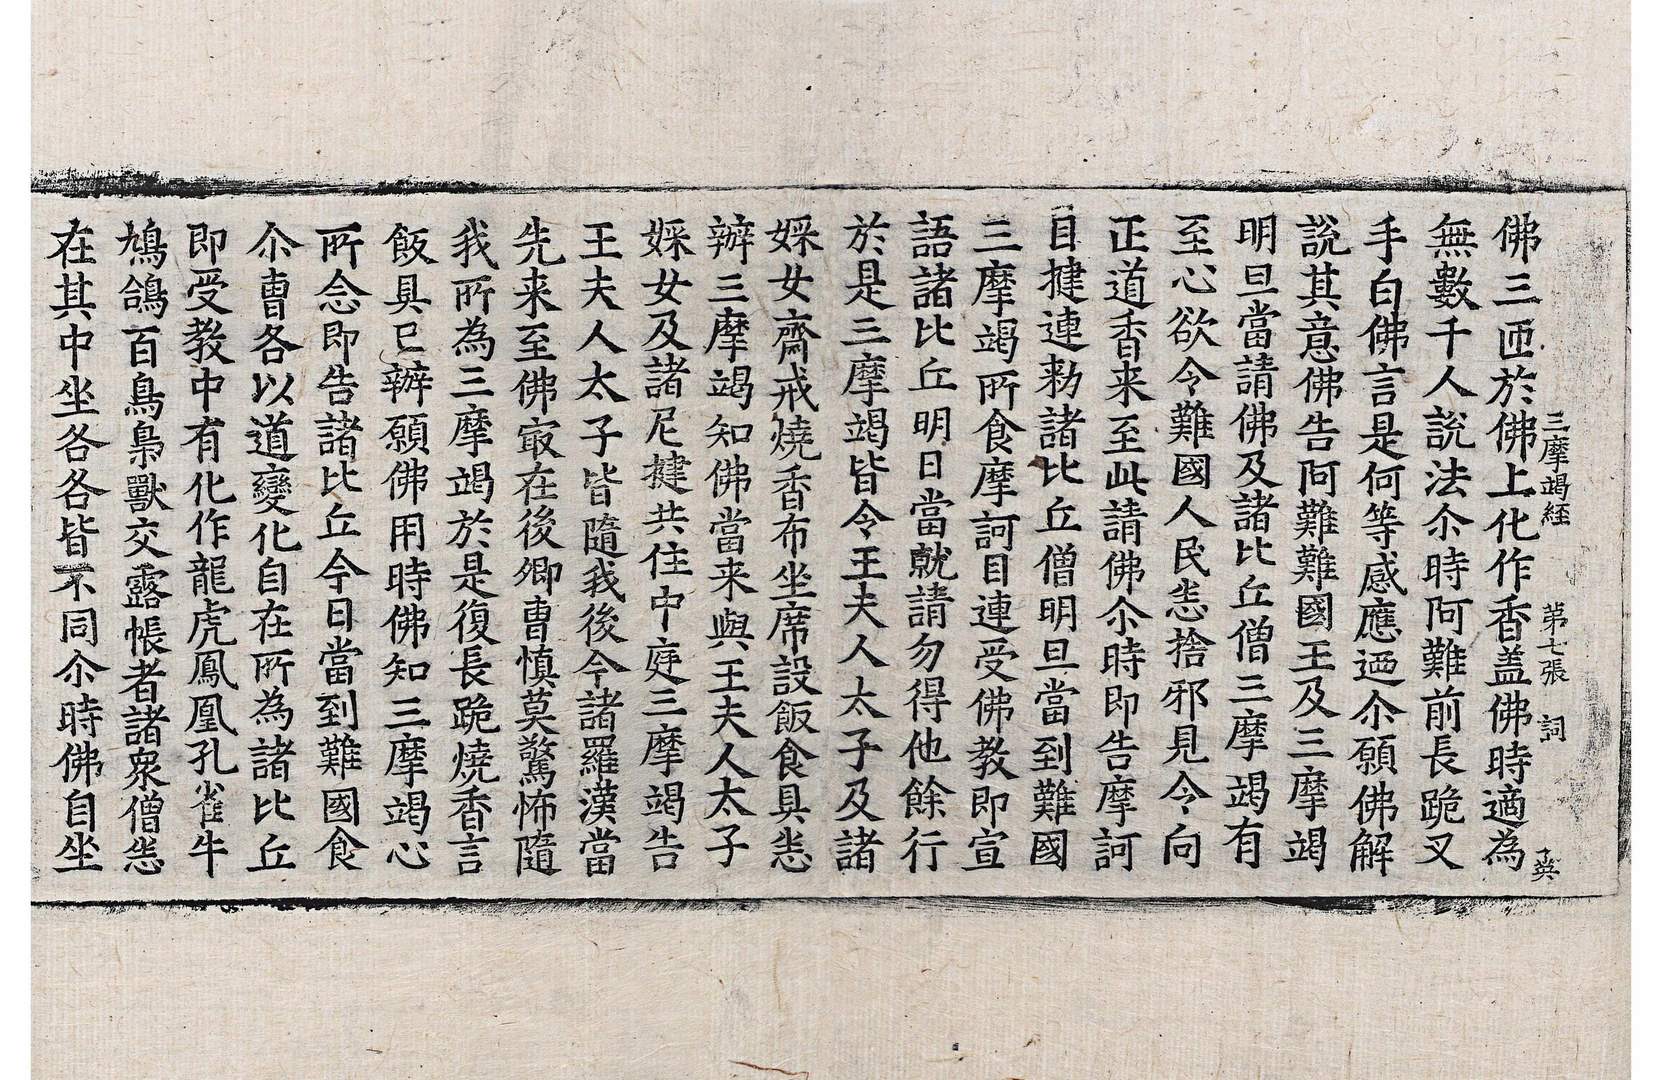 三摩竭経 第七張 詞
佛三匝於佛上化作香盖佛時適為
無數千人說法尒時阿難前長跪叉
手白佛言是何等感應迺尒願佛解
說其意佛告阿難難國王及三摩竭
明旦當請佛及諸比丘僧三摩竭有
至心欲令難國人民悉捨邪見令向
正道香来至此請佛尒時即告摩訶
目揵連勑諸比丘僧明旦當到難國
三摩竭所食摩訶目連受佛教即宣
語諸比丘明日當就請勿得他餘行
於是三摩竭皆令王夫人太子及諸
婇女齋戒燒香布坐席設飯食具悉
辦三摩竭知佛當来與王夫人太子
婇女及諸尼揵共住中庭三摩竭告
王夫人太子皆隨我後今諸羅漢當
先来至佛㝡在後卿曹慎莫驚怖隨
我所為三摩竭於是復長跪燒香言
飯具已辦願佛用時佛知三摩竭心
所念即告諸比丘今日當到難國食
尒曹各以道變化自在所為諸比丘
即受教中有化作龍虎鳳凰孔雀牛
鳩鴿百鳥梟獸交露帳者諸衆僧悉
在其中坐各各皆不同尒時佛自坐